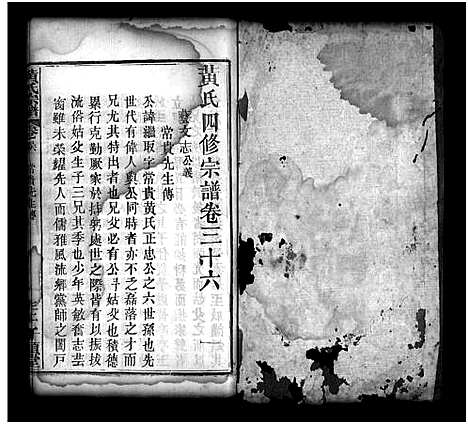 黃氏四修宗譜卷三十六
藝文志公義
常貴先生傳
公諱繼取字常貴黃氏正忠公之六世孫也先
世代有偉人與公同時者亦不乏磊落之才而
兄尤其特出者也兄父必有公子姑父也積德
累行克勤厥家於持躬處世之際皆有以振拔
流俗姑父生子三兄其季也少年英敏奮志芸
窗雖未榮耀先人而儒雅風流鄉黨師之閭戸
黃氏宗譜